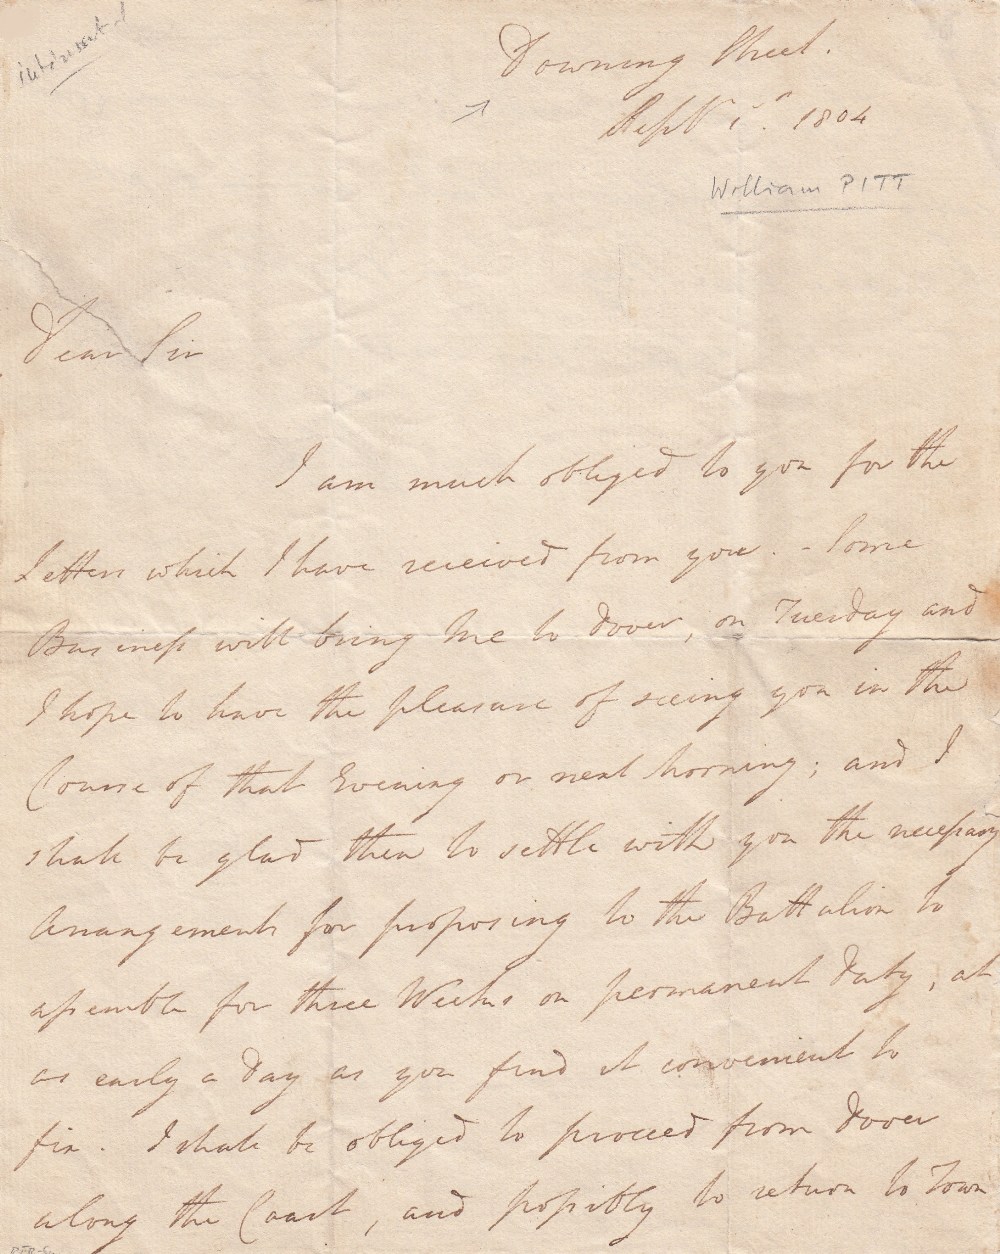 Downing Street.
Septr 1st. 1804
William PITT
Dear Sir
I am much obliged to you for the
Letters which I have received from you. - Some
Business will bring me to Dover, on Tuesday and
I hope to have the pleasure of seeing you in the
Course of that Evening or next Morning; and I
shall be glad then to settle with you the necessary
Arrangements for proposing to the Battalion to
assemble for three Weeks on permanent Duty, at
as early a Day as you find it convenient to
fix. I shall be obliged to proceed from Dover
along the Coast, and possibly to return to Town